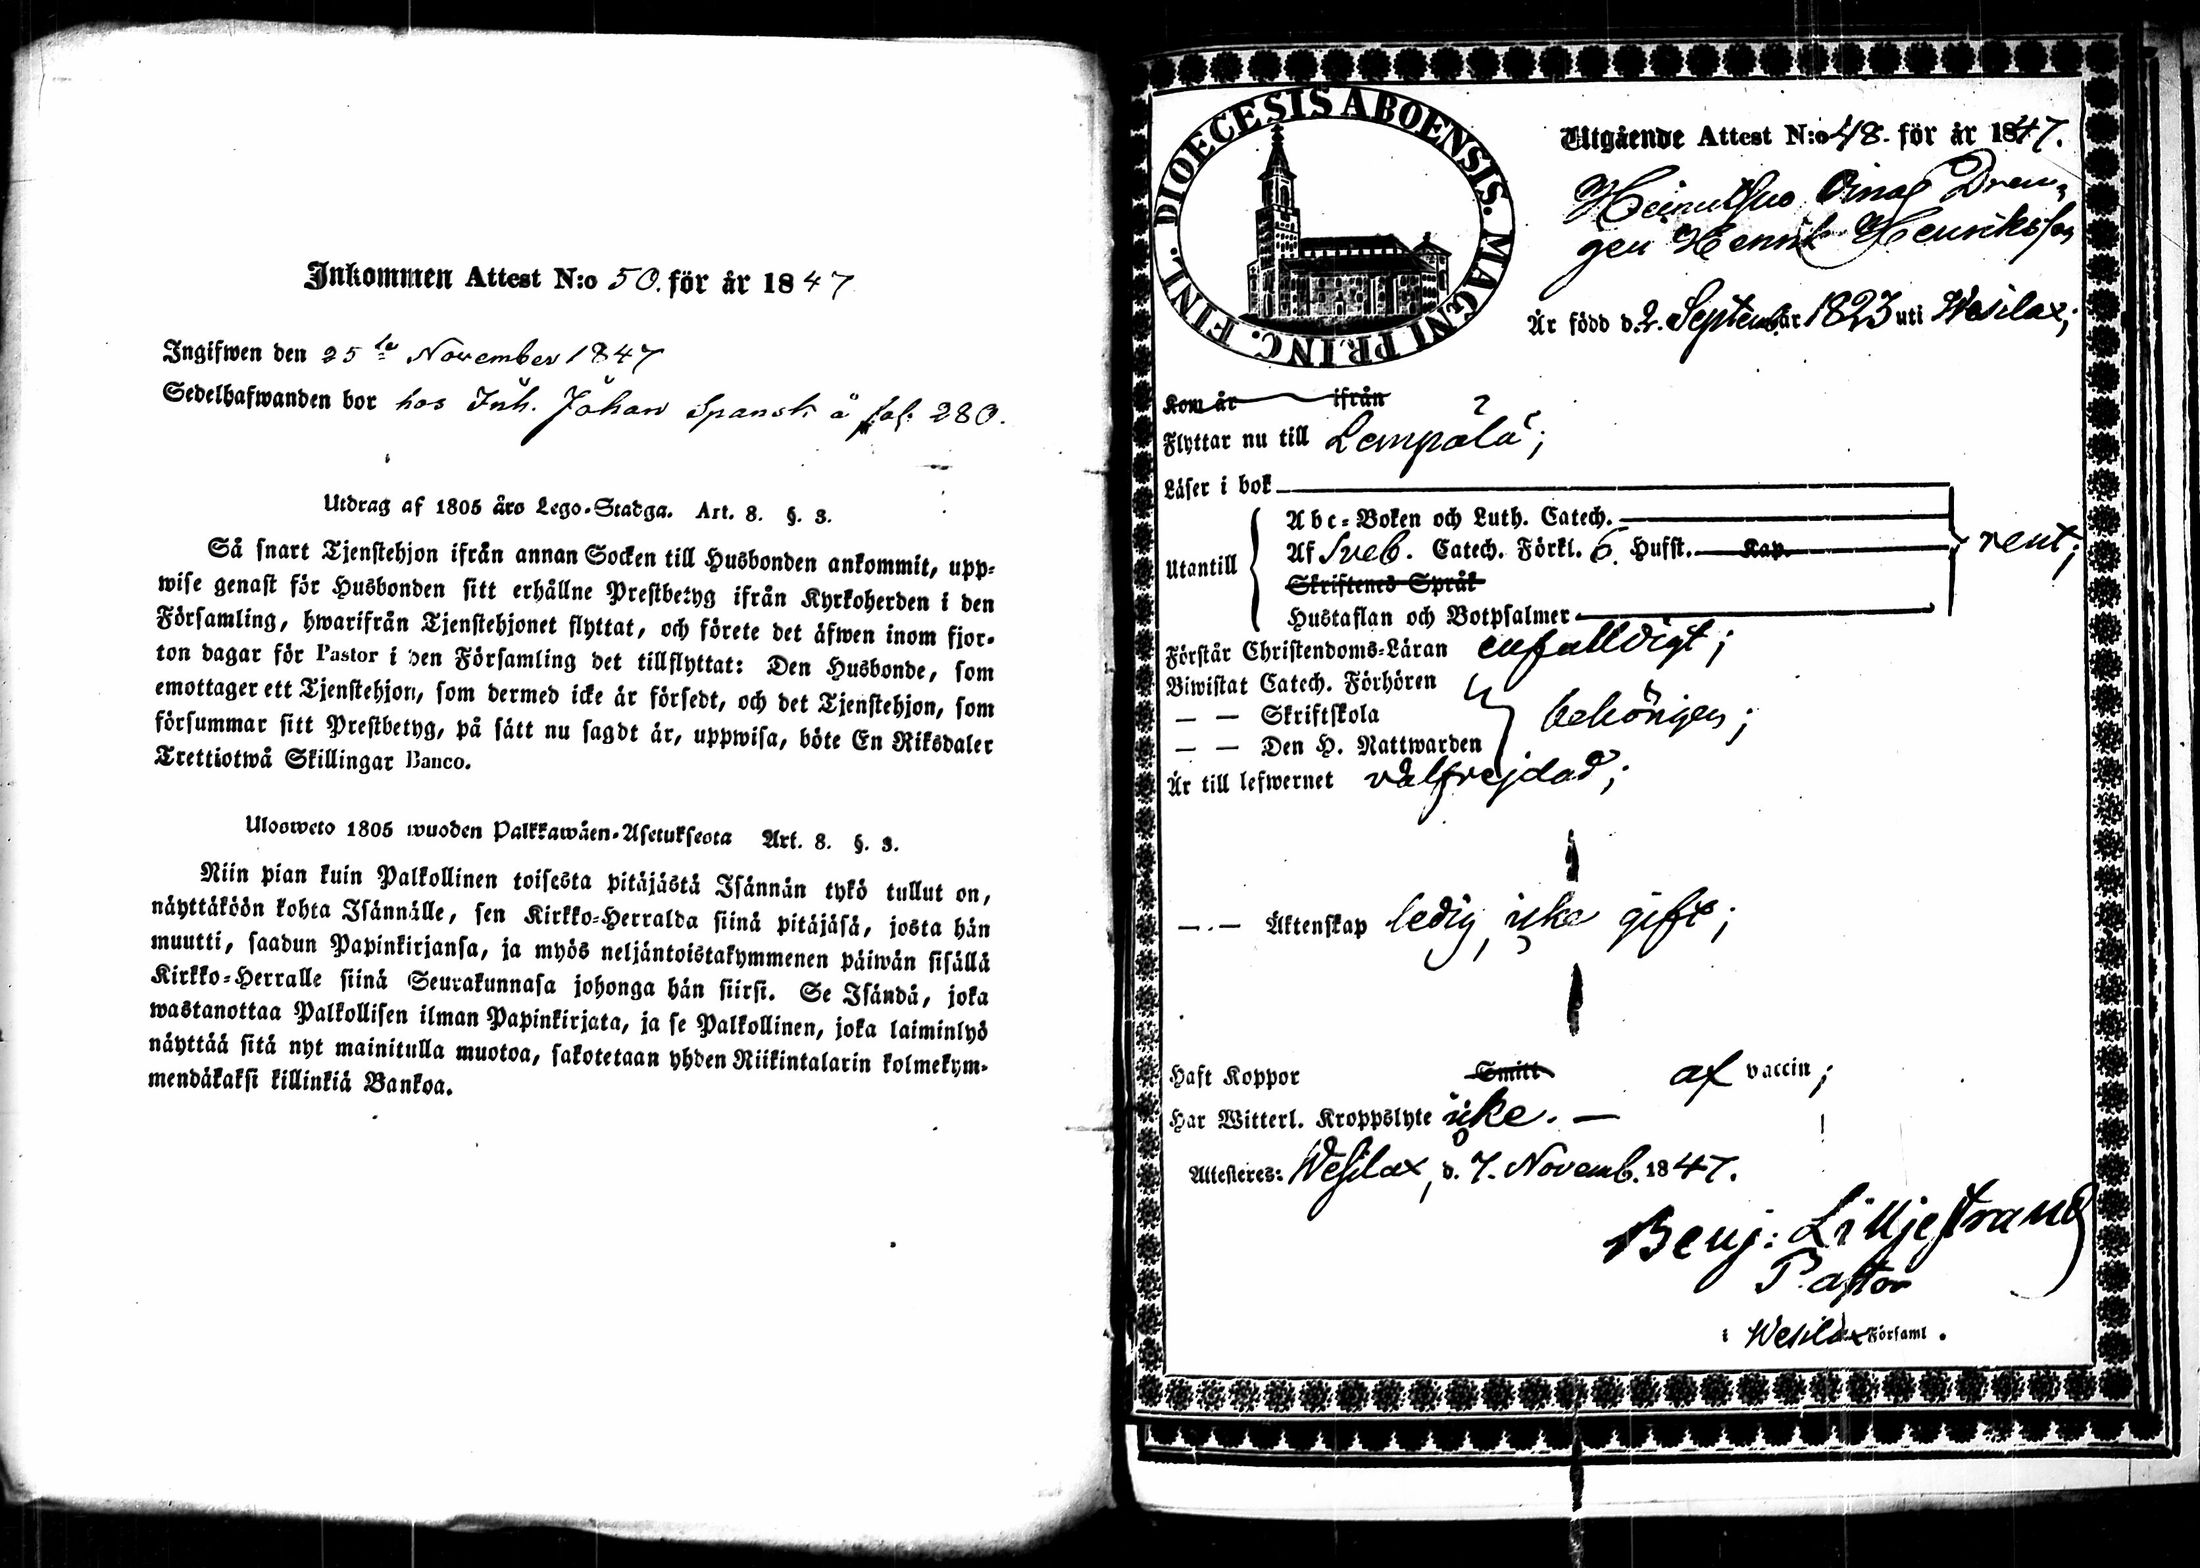 Inkommen Attest N:o 50. för år 1847
Ingifwen den 25te November 1847
Sedelhafwanden bor hos Inh. Johan Spansk å fol. 280.
Utdrag af 1805 års Lego-Stadga. Art. 8. §. 3.
Så snart Tjenstehjon ifrån annan Socken till Husbonden ankommit, upp-
wise genast för Husbonden sitt erhållne Prestbetyg ifrån Kyrkoherden i den
Församling, hwarifrån Tjenstehjonet flyttat, och förete det äfwen inom fjor-
ton dagar för Pastor i den Församling det tillflyttat: Den Husbonde, som
emottager ett Tjenstehjon, som dermed icke är försedt, och det Tjenstehjon, som
försummar sitt Prestbetyg, på sätt nu sagdt är, uppwisa, böte En Riksdaler
Trettiotwå Skillingar Banco.
Ulosweto 1805 wuoden Palkkawäen-Asetuksesta Art. 8. §. 3.
Niin pian kuin Palkollinen toisesta pitäjästä Isännän tykö tullut on,
näyttäköön kohta Isännälle, sen Kirkko-Herralda siinä pitäjäsä, josta hän
muutti, saadun Papinkirjansa, ja myös neljäntoistakymmenen päiwän sisällä
Kirkko-Herralle siinä Seurakunnasa johonga hän siirsi. Se Isändä, joka
wastanottaa Palkollisen ilman Papinkirjata, ja se Palkollinen, joka laiminlyö
näyttää sitä nyt mainitulla muotoa, sakotetaan yhden Riikintalarin kolmekym-
mendäkaksi killinkiä Bankoa.
DIOECESIS ABOENSIS. MAGNI PRINC. FINL.
Utgående Attest N:o 48. för år 1847.
Drän-
gen Henrik Henriksson
Är född d. 2. September 1823 uti Wesilax;
Kom år ifrån
Flyttar nu till Lempälä;
Läser i bok
Utantill
Abc-Boken och Luth. Catech.
Af Sveb. Catech. Förkl. 6. Hufst. Kap.
rent;
Skriftenes Språk
Hustaflan och Botpsalmer
Förstår Christendoms-Läran enfalldigt;
Biwistat Catech. Förhören
— — Skriftskola
behörigen;
— — Den H. Nattwarden
Är till lefwernet välfrejdad;
— — Äktenskap ledig, icke gift;
Haft Koppor Smitt af vaccin;
Har Witterl. Kroppslyte icke. —
Attesteres: Wesilax, d. 7. Novemb. 1847.
Benj: Lilljestrand
Pastor
i Wesilax Församl.